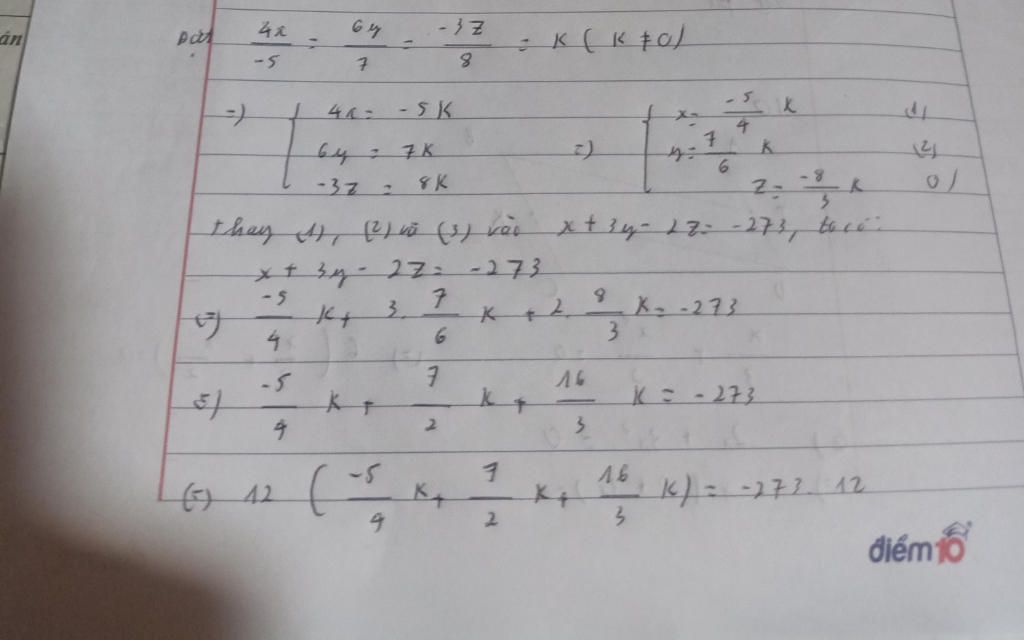 án
Đặt 4x/-5 = 6y/7 = -3z/8 = K (K ≠ 0)
=) { 4x = -5K =) { x = -5/4 K (1)
6y = 7K y = 7/6 K (2)
-3z = 8K z = -8/3 K
thay (1), (2) và (3) vào x + 3y - 2z = -273, ta có:
x + 3y - 2z = -273
(=) -5/4 K + 3. 7/6 K + 2. 8/3 K = -273
-5/4 K + 7/2 K + 16/3 K = -273
(=) 12 ( -5/4 K + 7/2 K + 16/3 K) = -273. 12
điểm10